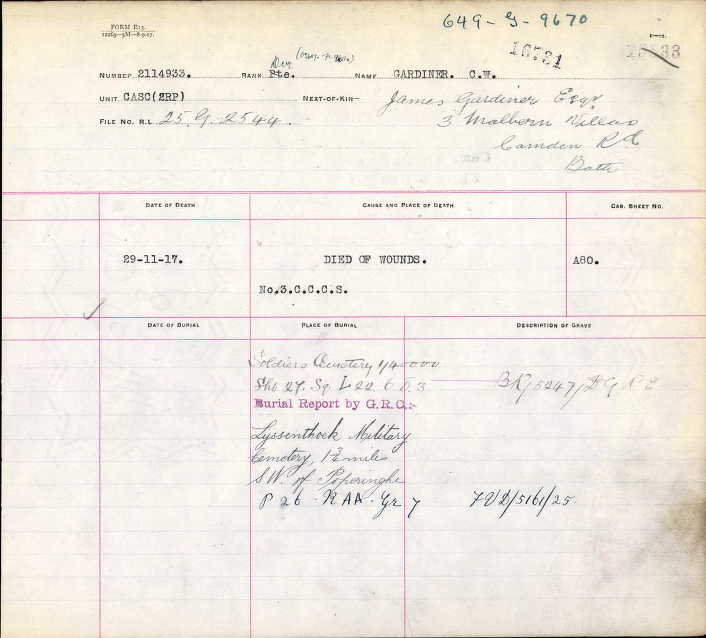 649-G-9670
FORM R13.
16731
NUMBER 2114933. RANK Pte. NAME GARDINER. C.W.
UNIT CASC(2RP) NEXT-OF-KIN James Gardiner Esqr
FILE NO. R.L. 25.G.2544. 3 Malbern Villas
Camden Rd
Bath
DATE OF DEATH CAUSE AND PLACE OF DEATH CAS. SHEET NO.
29-11-17. DIED OF WOUNDS. A80.
No.3.C.C.C.S.
DATE OF BURIAL PLACE OF BURIAL DESCRIPTION OF GRAVE
Soldiers Cemetery 1/40000
Sht 27. Sq. L 22 6.D.3
Burial Report by G.R.C:-
Lyssenthoek Military
Cemetery, miles
S.W. of Poperinghe
P 26. R AA. Gr 7